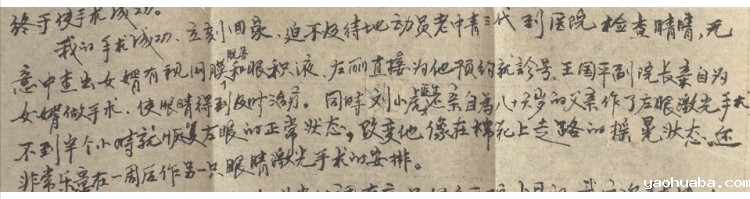 终于使手术成功。
我的手术成功、立刻回家、迫不及待地动员老中青三代到医院检查眼睛,无
意中查出女婿有视网膜脱落和眼积液、左丽直接为他预约就诊号、王国平副院长亲自为
女婿做手术、使眼睛得到及时治疗。同时刘小虎亲自为八十岁的父亲作了右眼激光手术
不到半个小时就恢复右眼的正常状态,改变他像在棉花上走路的摇晃状态、还
非常乐意在一周后作另一只眼睛激光手术的安排。
yaohuaba.com